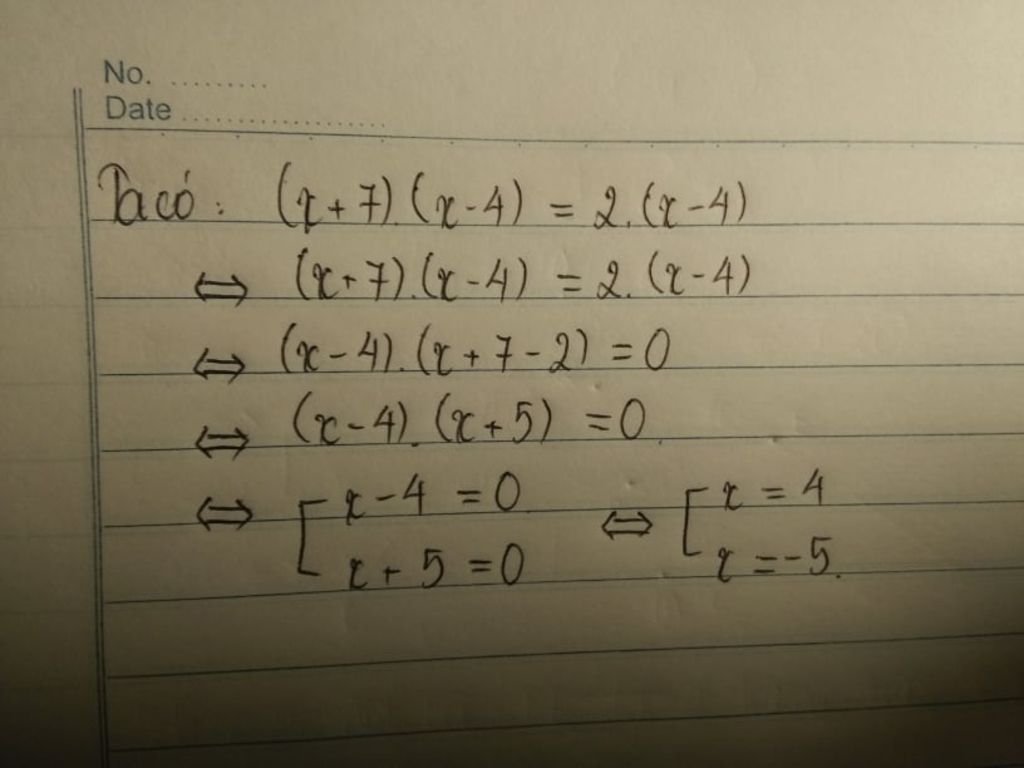 No. .........
Date ...................
Ta có: (x+7).(x-4) = 2.(x-4)
⇔ (x+7).(x-4) = 2.(x-4)
⇔ (x-4).(x+7-2) = 0
⇔ (x-4).(x+5) = 0.
⇔ [ x-4 = 0 ⇔ [ x = 4
x+5 = 0 x = -5.